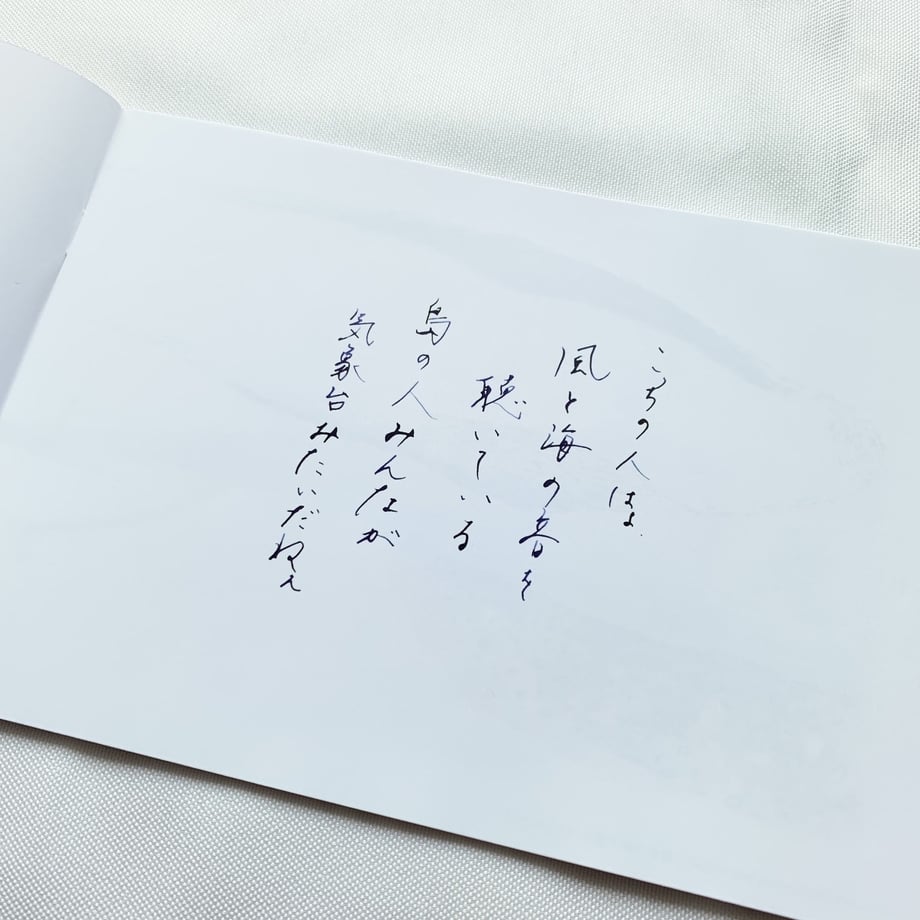 こっちの人はよ
風と海の音を
聴いている
島の人みんなが
気象台みたいだねぇ